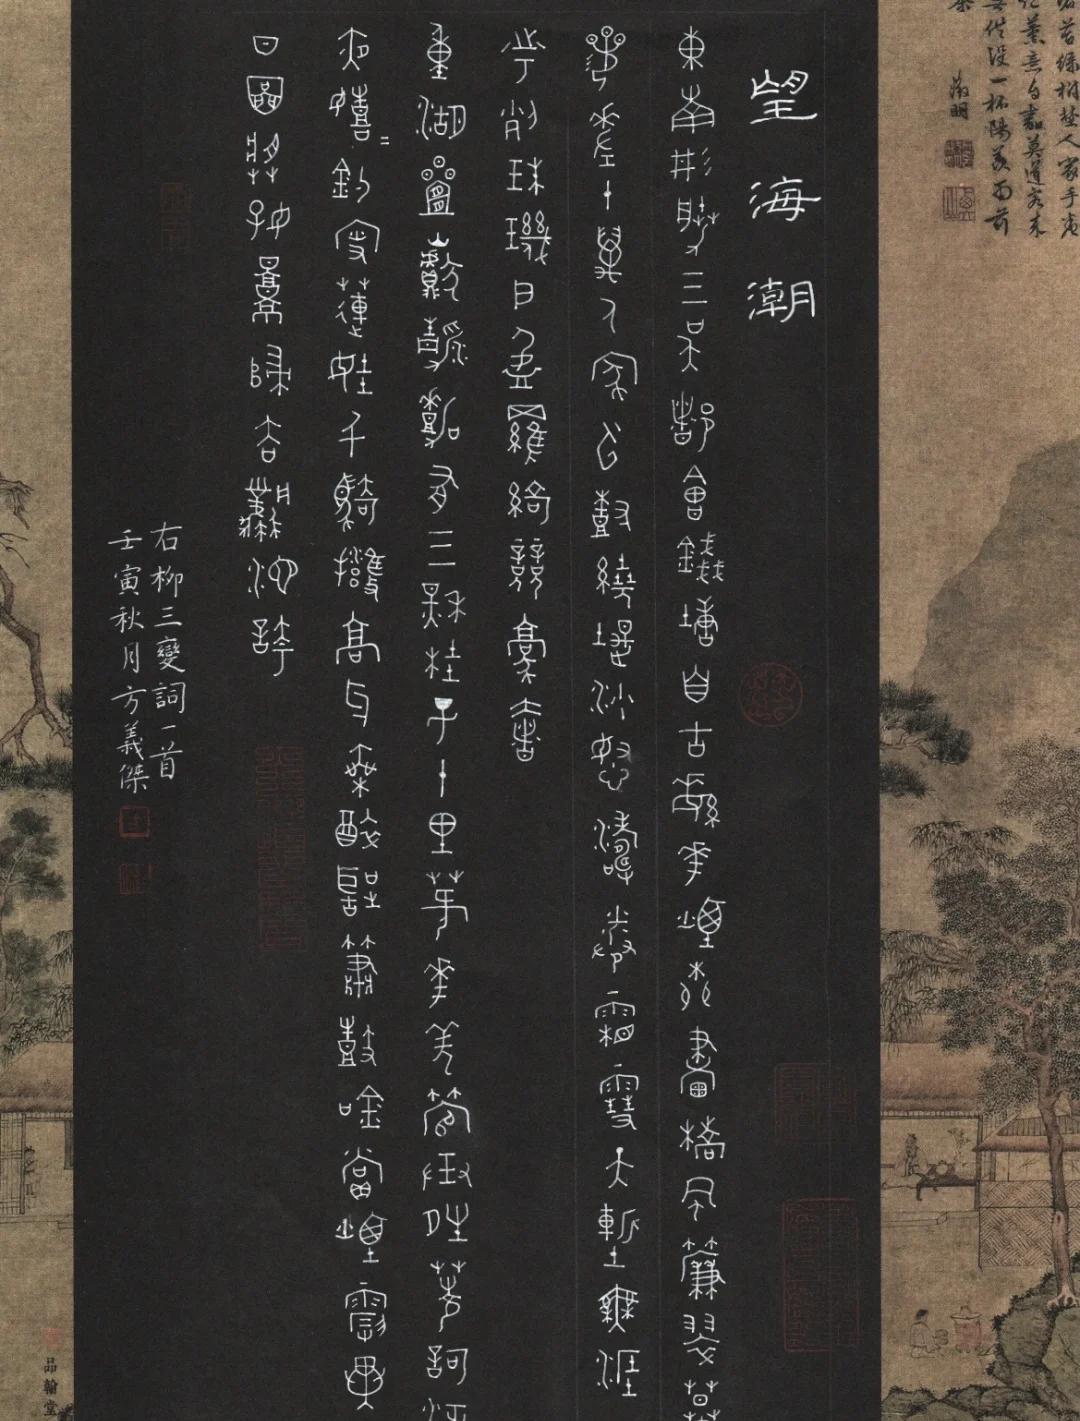 自嘉莫道客來
供設一杯陽羨雨前
茶
徵明
望海潮
東南形勝三吳都會錢塘自古繁華煙柳畫橋風簾翠幕
參差十萬人家雲樹繞堤沙怒濤卷霜雪天塹無涯
市列珠璣戶盈羅綺競豪奢
重湖疊巘清嘉有三秋桂子十里荷花羌管弄晴菱歌泛
夜嬉〻釣叟蓮娃千騎擁高牙乘醉聽簫鼓吟賞煙霞異
日圖將好景歸去鳳池誇
右柳三變詞一首
壬寅秋月方義傑
品翰堂